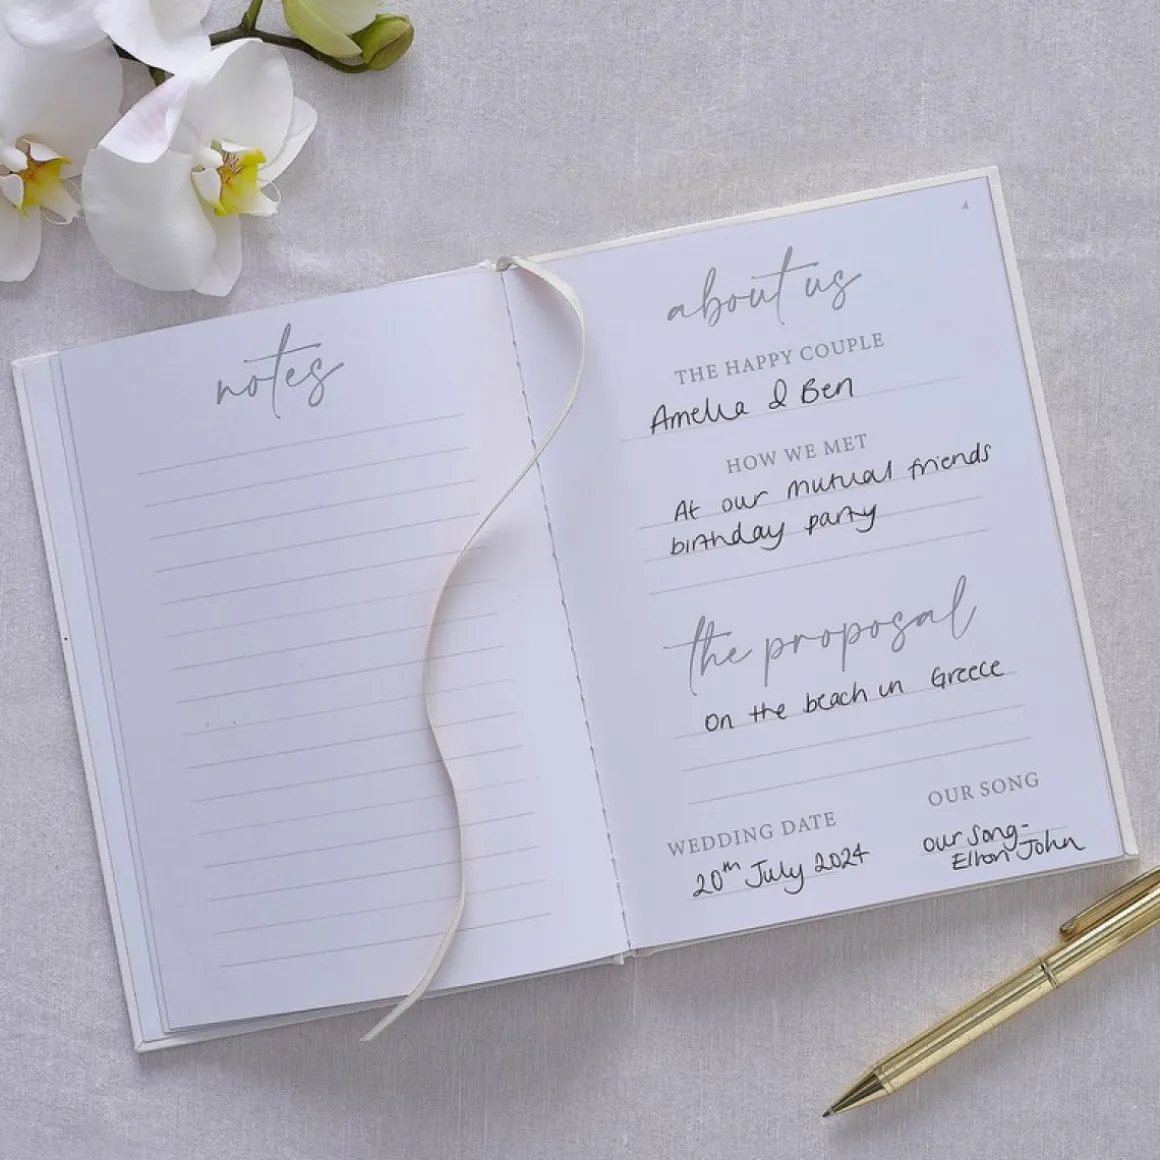 notes
4
about us
THE HAPPY COUPLE
Amelia & Ben
HOW WE MET
At our mutual friends
birthday party
the proposal
on the beach in Greece
WEDDING DATE
20th July 2024
OUR SONG
our song -
Elton John